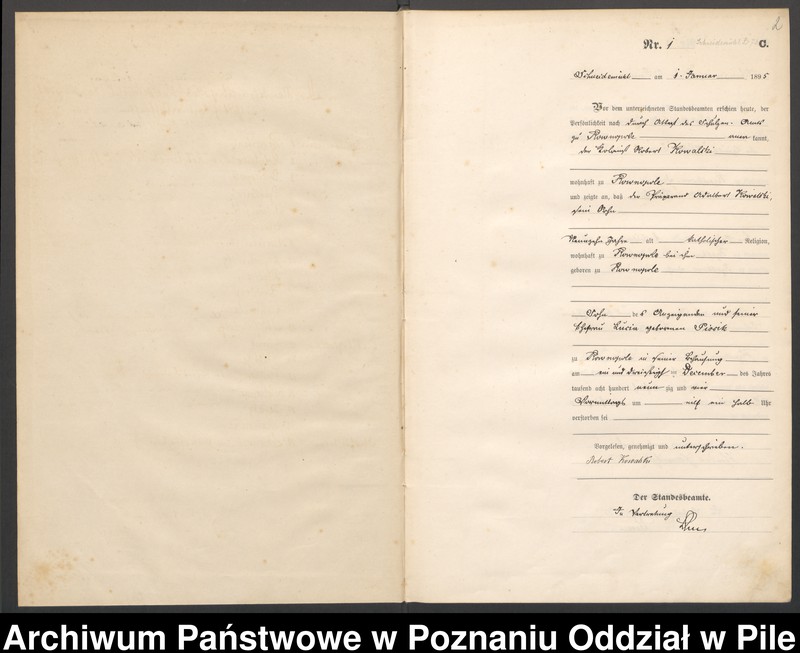 2
Nr. 1 C.
Schneidemühl am 1. Januar 1895
Vor dem unterzeichneten Standesbeamten erschien heute, der
Persönlichkeit nach durch Attest des Schulzen-Amts
zu Rownopole anerkannt,
der Robert Kowalski
wohnhaft zu Rownopole
und zeigte an, daß der Präparand Adalbert Kowalski,
sein Sohn
Neunzehn Jahre alt katholischer Religion,
wohnhaft zu Rownopole bei ihm
geboren zu Rownopole
Sohn des Anzeigenden und seiner
Ehefrau Lucia geborenen
zu Rownopole in seiner Behausung
am ein und dreißigsten December des Jahres
tausend acht hundert neunzig und vier
Vormittags um ein halb Uhr
verstorben sei
Vorgelesen, genehmigt und unterschrieben.
Robert Kowalski
Der Standesbeamte.
In Vertretung
Archiwum Państwowe w Poznaniu Oddział w Pile